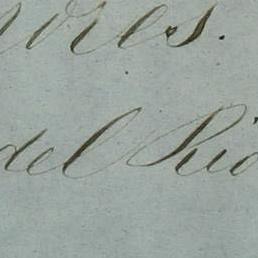 ores.
del Rio